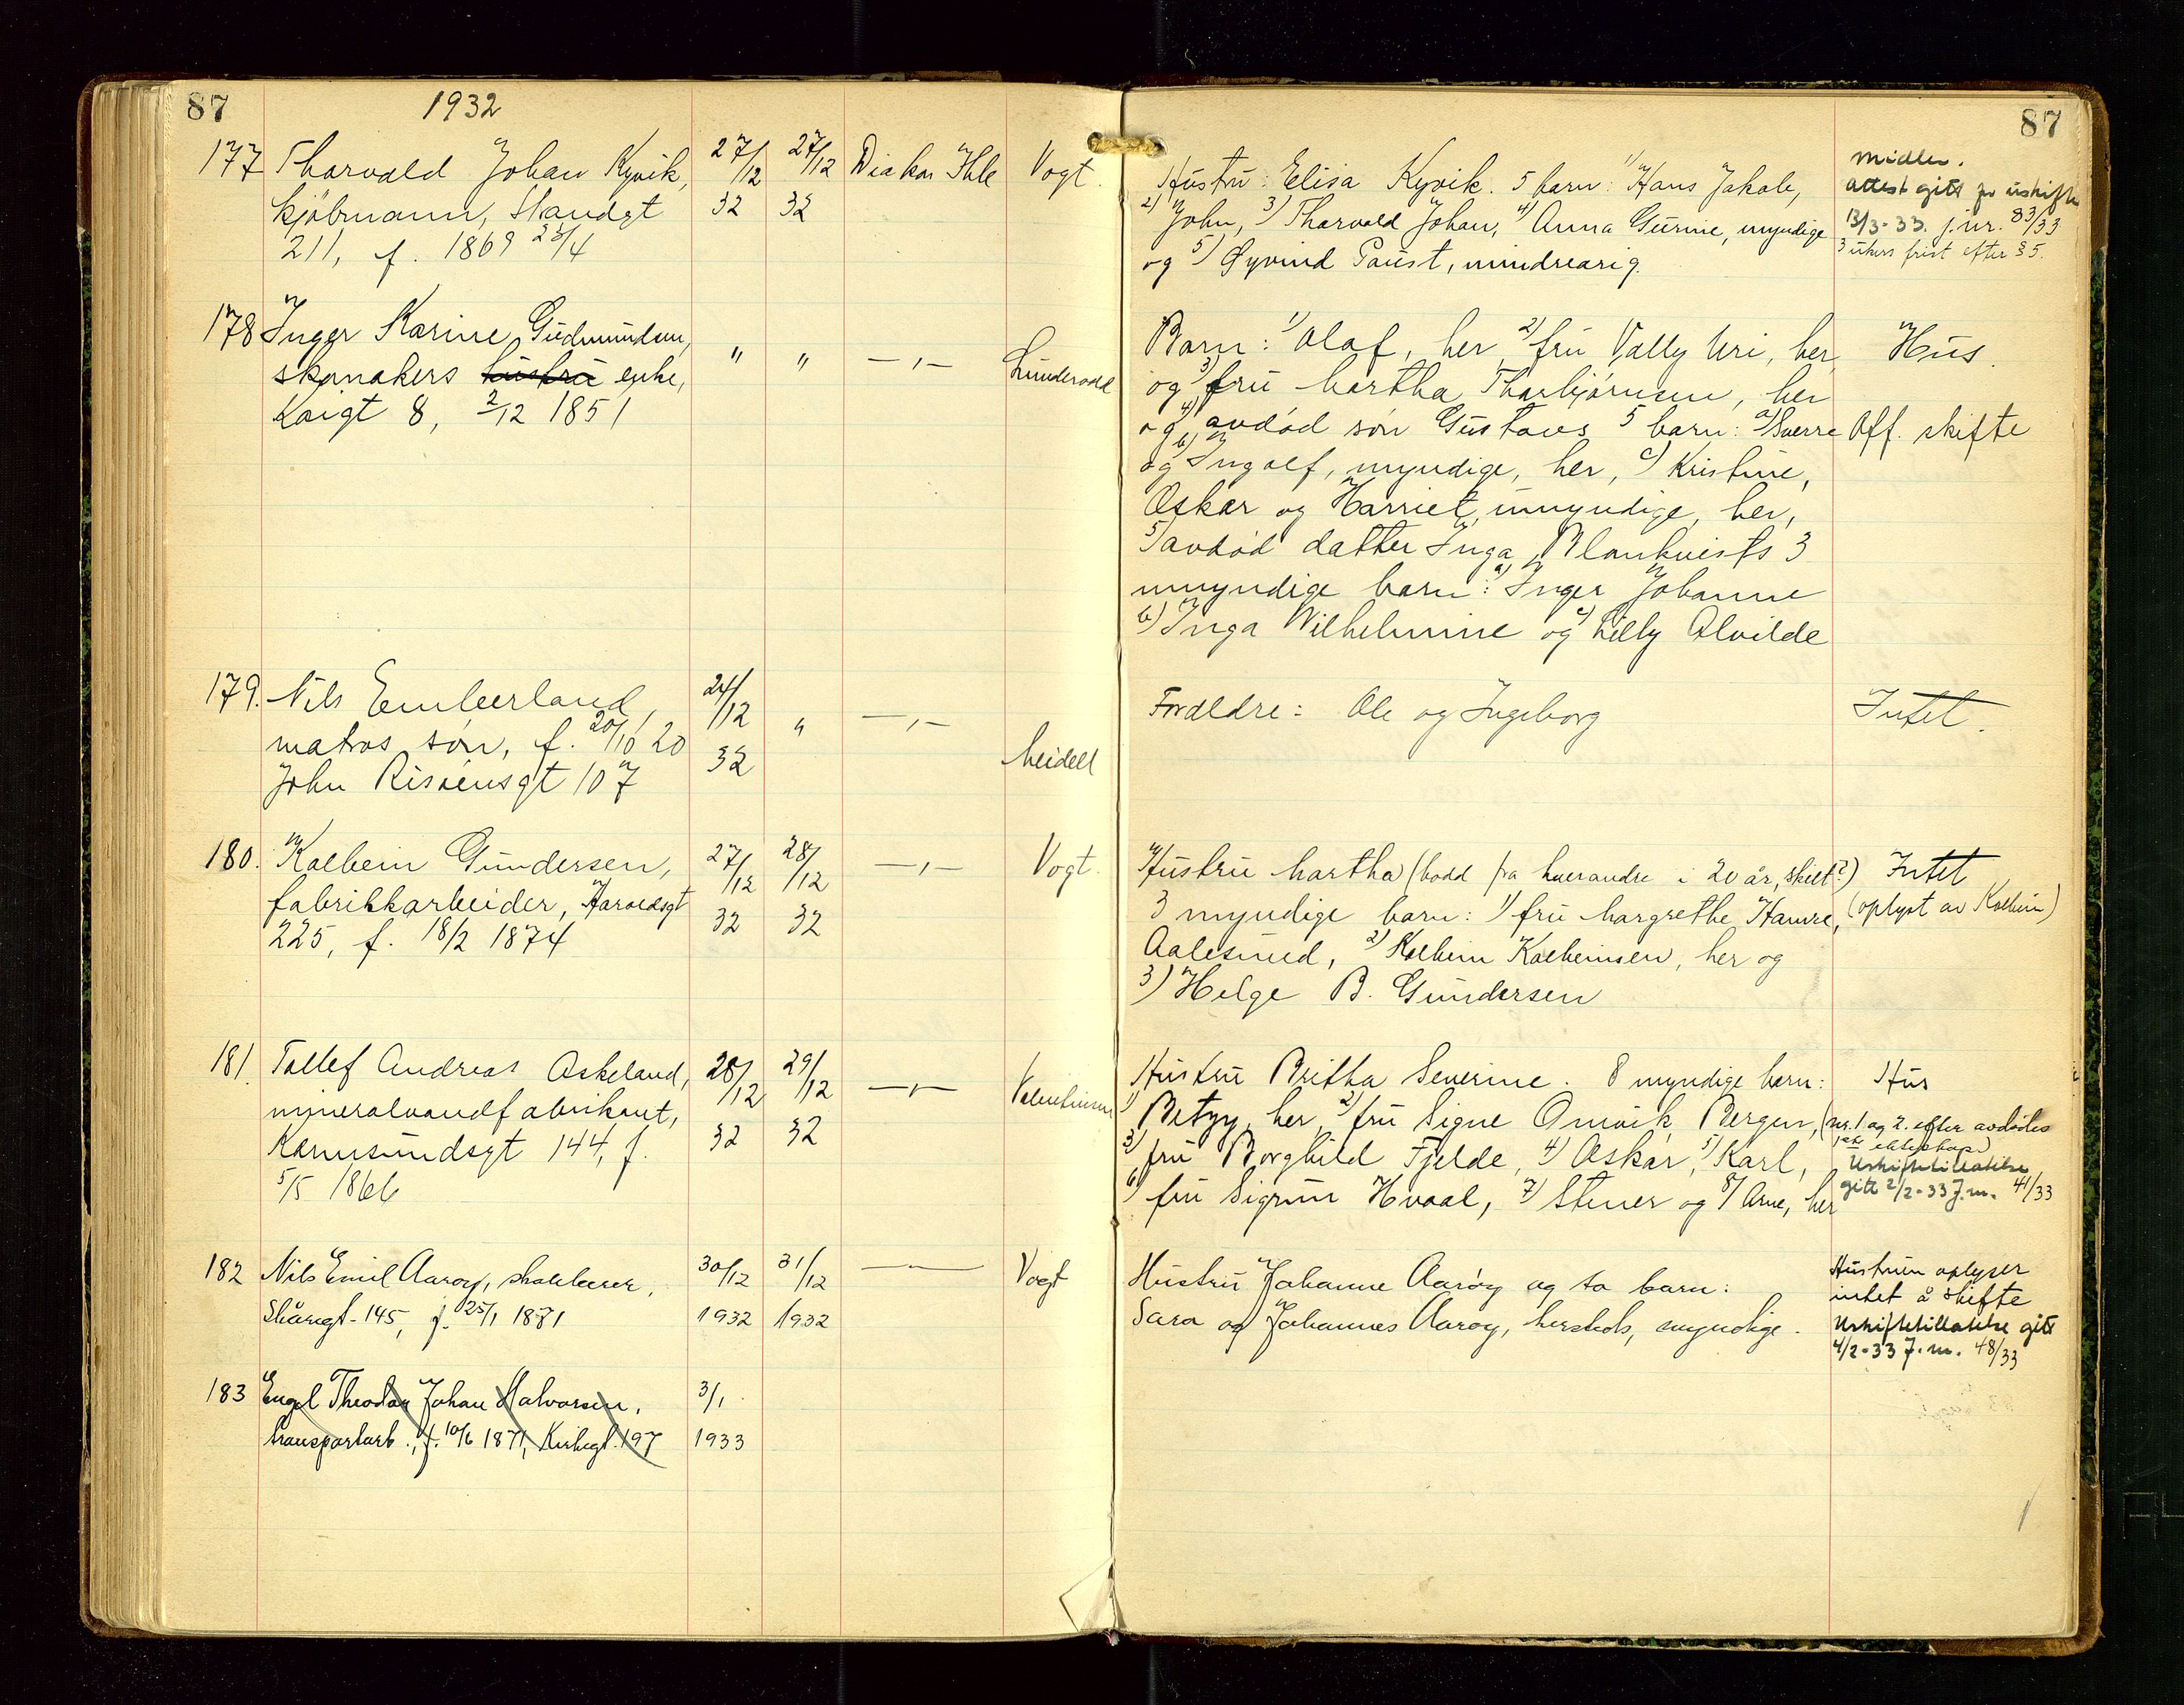 87
1932
177 Thorvald Johan Kyvik, 27/12 32 27/12 32 Diakon Ihle Vogt.
kjøbmann, Strandgt
211, f. 1869 23/4
Hustru: Elisa Kyvik. 5 barn: 1) Hans Jakob,
2) John, 3) Thorvald Johan, 4) Anna Gurine, myndige
og 5) Øyvind Paust, mindreårig.
87
Midler.
Attest gitt for uskifte
13/3-33. j.nr. 83/33
3 ukers frist efter § 5.
178 Inger Karine Gudmundsen, " " —,—
skomakers hustru enke,
Kaigt 8, 2/12 1851
Barn: 1) Olaf, her, 2) fru Vally Uri, her, Hus.
og 3) fru Martha Thorbjørnsen, her
og 4) avdød søn Gustavs 5 barn: a) Sverre Off. skifte
og b) Ingolf, myndige, her, c) Kristine,
Oskar og Harriet, umyndige, her,
5) avdød datter Inga Blankvists 3
umyndige barn: a) Inger Johanne
b) Inga Wilhelmine og c) Lilly Alvilde
179. Nils Emberland, 24/12 32 " —,— Meidell
matros søn, f. 20/10 20
John Risøensgt 107
Foreldre: Ole og Ingeborg Intet.
180. Kolbein Gundersen, 27/12 32 28/12 32 —,— Vogt.
fabrikkarbeider, Haraldsgt
225, f. 18/2 1874
Hustru Martha (bodd fra hverandre i 20 år, skilt?) Intet
3 myndige barn: 1) fru Margrethe Hamre, (oplyst av Kolbein)
Aalesund, 2) Kolbein Kolbeinsen, her og
3) Helge B. Gundersen
181. Tollef Andreas Askeland, 28/12 32 29/12 32 —,— Valentinsen
mineralvandfabrikant,
Karmsundsgt 144, f.
5/5 1866
Hustru Britha Severine. 8 myndige barn: Hus
1) Betzy, her, 2) fru Signe Omvik, Bergen, (nr. 1 og 2. efter avdødes
3) fru Borghild Fjelde, 4) Oskar, 5) Karl, 1ste ekteskap)
6) fru Sigrun Hvaal, 7) Stener og 8) Arne, her
Uskiftetillatelse
gitt 2/2-33 J.nr. 41/33
182 Nils Emil Aarøy, 30/12 1932 31/12 1932 —,— Vogt
Skåregt. 145, f. 25/1 1871
Hustru Johanne Aarøy og to barn:
Sara og Johannes Aarøy, hersteds, myndige.
Hustruen oplyser
intet å skifte
Uskiftetillatelse gitt
4/2-33 J.nr. 48/33
183 Engel Theodor Johan Halvorsen, 3/1 1933
transportarb., f. 10/6 1871, Kirkegt. 197